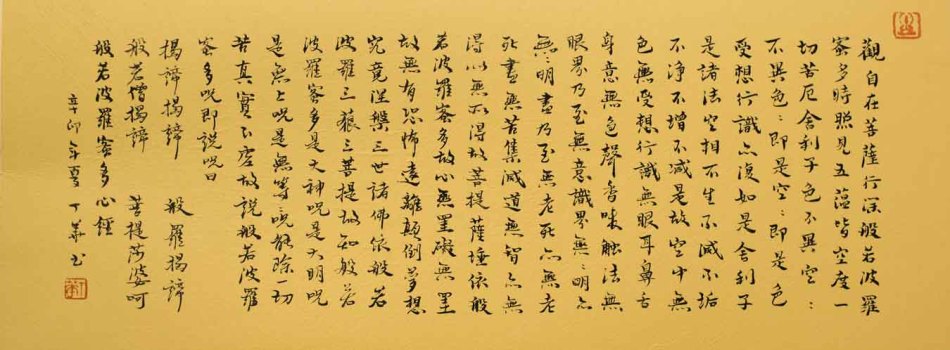 觀自在菩薩行深般若波羅
蜜多時照見五蘊皆空度一
切苦厄舍利子色不異空：
不異色：即是空：即是色
受想行識亦復如是舍利子
是諸法空相不生不滅不垢
不淨不增不減是故空中無
色無受想行識無眼耳鼻舌
身意無色聲香味觸法無
眼界乃至無意識界無：明亦
無：明盡乃至無老死亦無老
死盡無苦集滅道無智亦無
得以無所得故菩提薩埵依般
若波羅蜜多故心無罣礙無罣
故無有恐怖遠離顛倒夢想
究竟涅槃三世諸佛依般若
波羅三藐三菩提故知般若
波羅蜜多是大神咒是大明咒
是無上咒是無等咒能除一切
苦真實不虛故說般若波羅
蜜多咒即說咒曰
揭諦揭諦 般羅揭諦
般若僧揭諦 菩提莎婆呵
般若波羅蜜多心經
辛卯年夏 丁 书